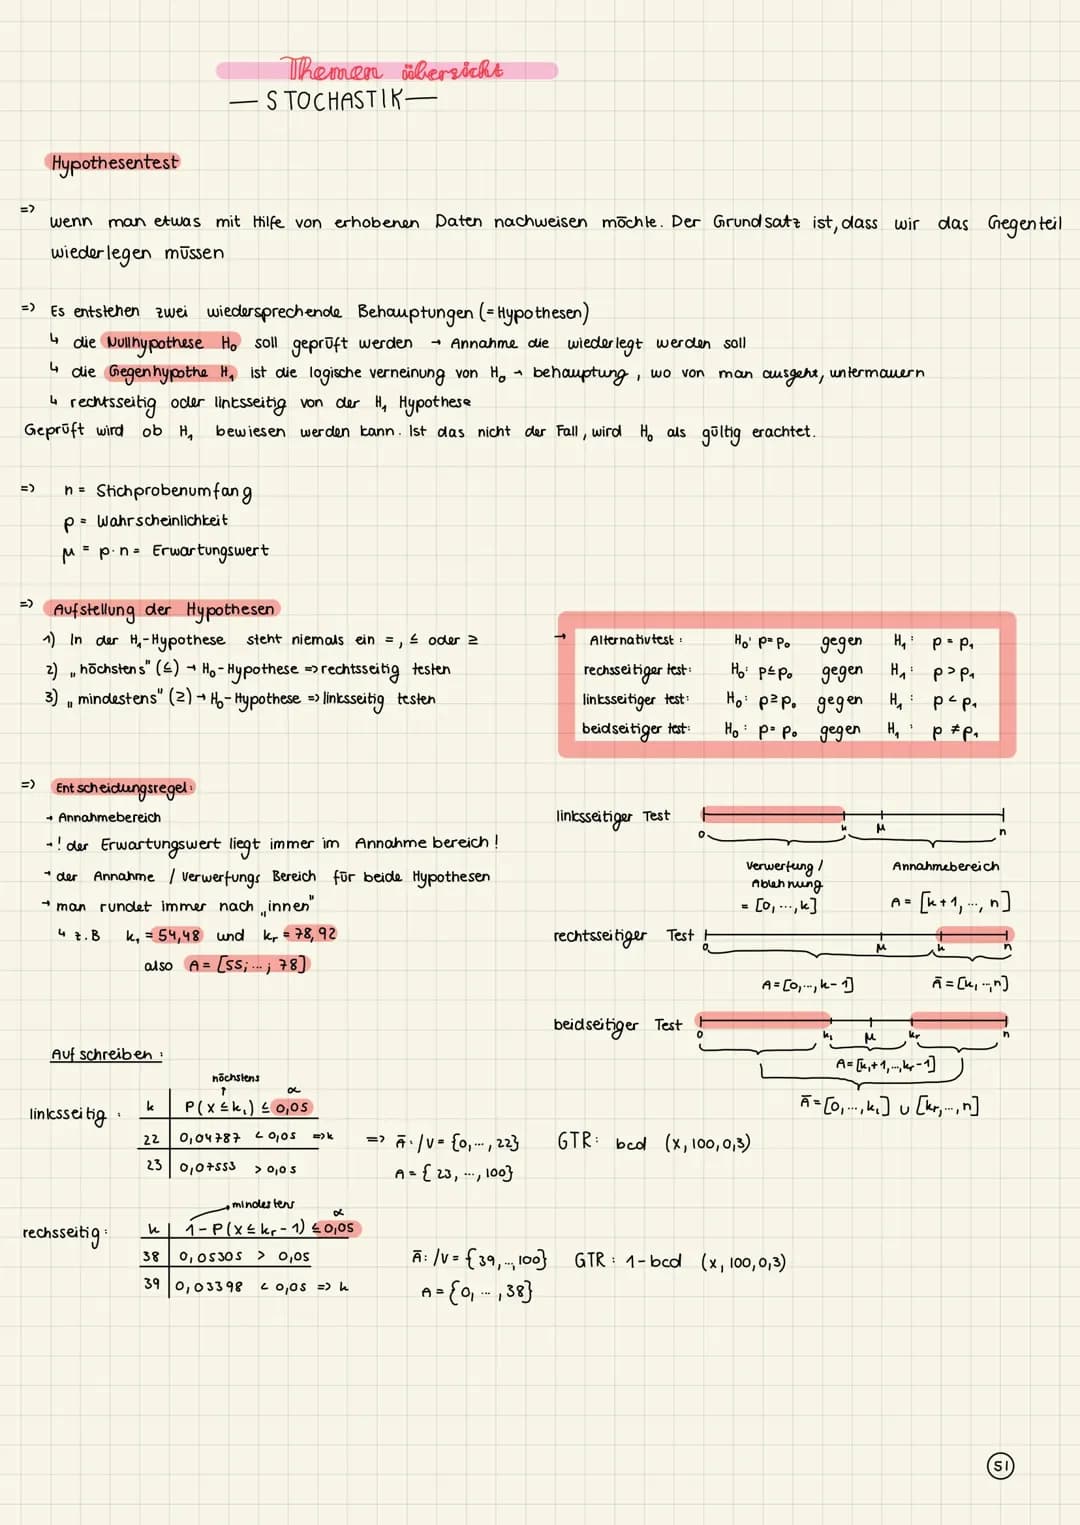 Themen übersicht
— STOCHASTIK —
Hypothesentest
=> wenn man etwas mit Hilfe von erhobenen Daten nachweisen möchte. Der Grundsatz ist, dass wir das Gegenteil
wiederlegen müssen
=> Es entstehen zwei wiedersprechende Behauptungen (= Hypothesen)
↳ die Nullhypothese H₀ soll geprüft werden → Annahme die wiederlegt werden soll
↳ die Gegenhypothe H₁ ist die logische verneinung von H₀ → behauptung, wo von man ausgeht, untermauern
↳ rechtsseitig oder linksseitig von der H₁ Hypothese
Geprüft wird ob H₁ bewiesen werden kann. Ist das nicht der Fall, wird H₀ als gültig erachtet.
=> n = Stichprobenumfang
p = Wahrscheinlichkeit
μ = p·n = Erwartungswert
=> Aufstellung der Hypothesen
1) In der H₁-Hypothese steht niemals ein =, ≤ oder ≥
2) „höchstens" (≤) → H₀-Hypothese => rechtsseitig testen
3) „mindestens" (≥) → H₀-Hypothese => linksseitig testen
→ Alternativtest: H₀: p=p₀ gegen H₁: p=p₁
rechsseitiger test: H₀: p≤p₀ gegen H₁: p>p₁
linksseitiger test: H₀: p≥p₀ gegen H₁: p<p₁
beidseitiger test: H₀: p=p₀ gegen H₁: p≠p₁
=> Entscheidungsregel:
→ Annahmebereich
→ ! der Erwartungswert liegt immer im Annahme bereich !
→ der Annahme / Verwerfungs Bereich für beide Hypothesen
→ man rundet immer nach „innen"
↳ z.B k₁ = 54,48 und kᵣ = 78,92
also A = [55; ...; 78]
linksseitiger Test
0 k μ n
Verwerfung / Annahmebereich
Ablehnung
= [0, ..., k] A = [k+1, ..., n]
rechtsseitiger Test
0 μ k n
A = [0, ..., k-1] Ā = [k, ..., n]
beidseitiger Test
0 k₁ μ kᵣ n
A = [k₁+1, ..., kᵣ-1]
Ā = [0, ..., k₁] ∪ [kᵣ, ..., n]
Aufschreiben:
höchstens
↑ α
linksseitig: k P(X≤k₁) ≤ 0,05
22 0,04787 < 0,05 => k
23 0,07553 > 0,05
=> Ā: /V = {0, ..., 22} GTR: bcd (x, 100, 0,3)
A = {23, ..., 100}
mindestens
α
rechsseitig: k 1-P(X≤kᵣ-1) ≤ 0,05
38 0,05305 > 0,05
39 0,03398 < 0,05 => k
Ā: /V = {39, ..., 100} GTR: 1-bcd (x, 100, 0,3)
A = {0, ..., 38}
51